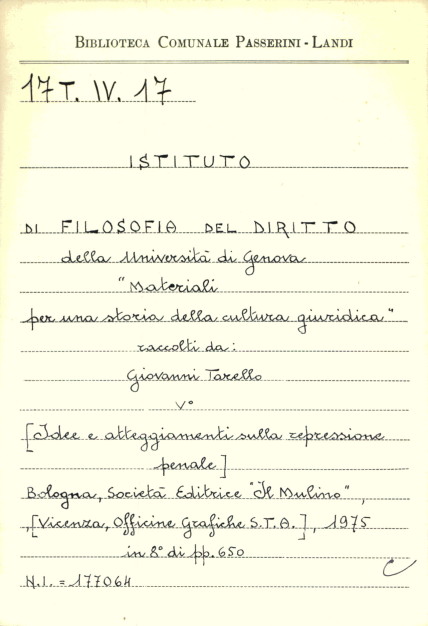 BIBLIOTECA COMUNALE PASSERINI - LANDI
17 T. IV. 17
ISTITUTO
DI FILOSOFIA DEL DIRITTO
della Università di Genova
"Materiali
per una storia della cultura giuridica"
raccolti da:
Giovanni Tarello
V°
[Idee e atteggiamenti sulla repressione
penale]
Bologna, Società Editrice "Il Mulino",
,[Vicenza, Officine Grafiche S.T.A.], 1975
in 8° di pp. 650
N.I. = 177064